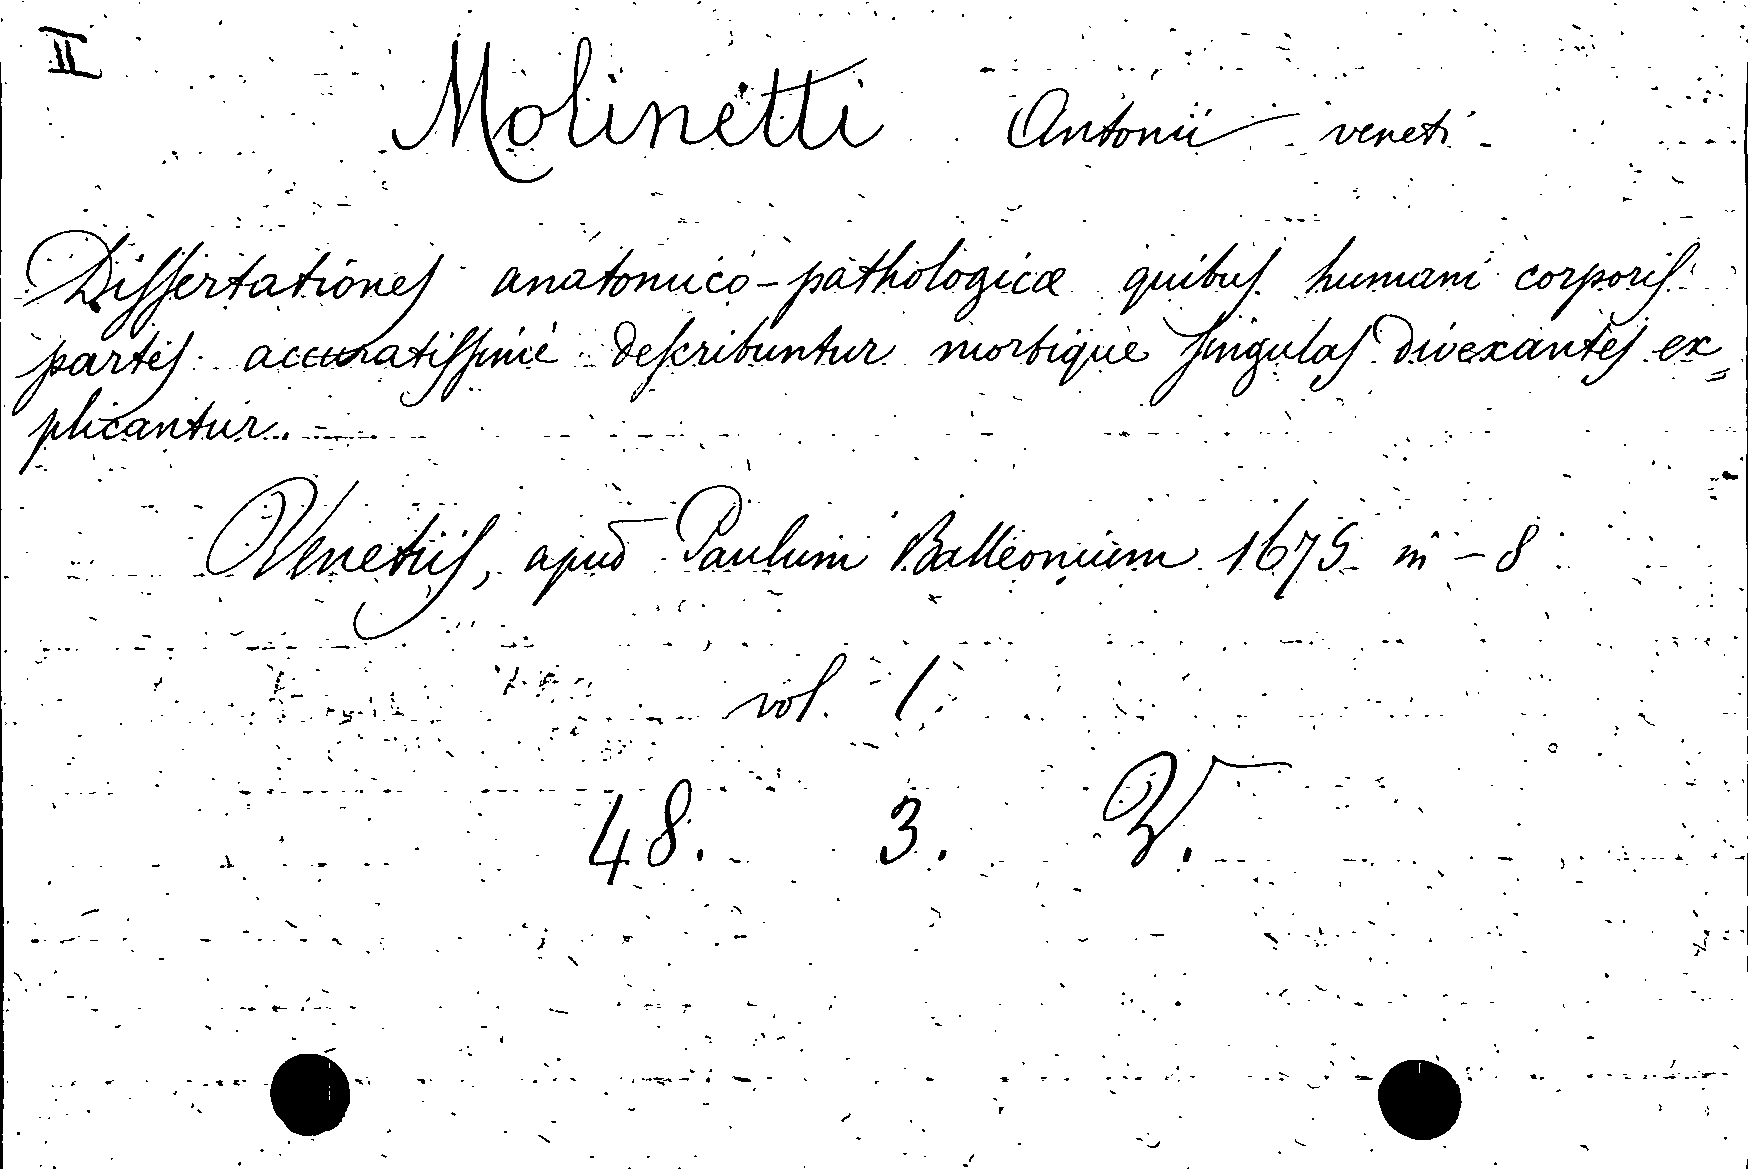 II
Molinetti Antonii veneti
Dissertationes anatomico-pathologicæ quibus humani corporis
partes accuratissime describuntur morbique singulas divexantes ex=
plicantur.
Venetiis, apud Paulum Balleonium 1675 in-8
vol. 1
48. 3. V.